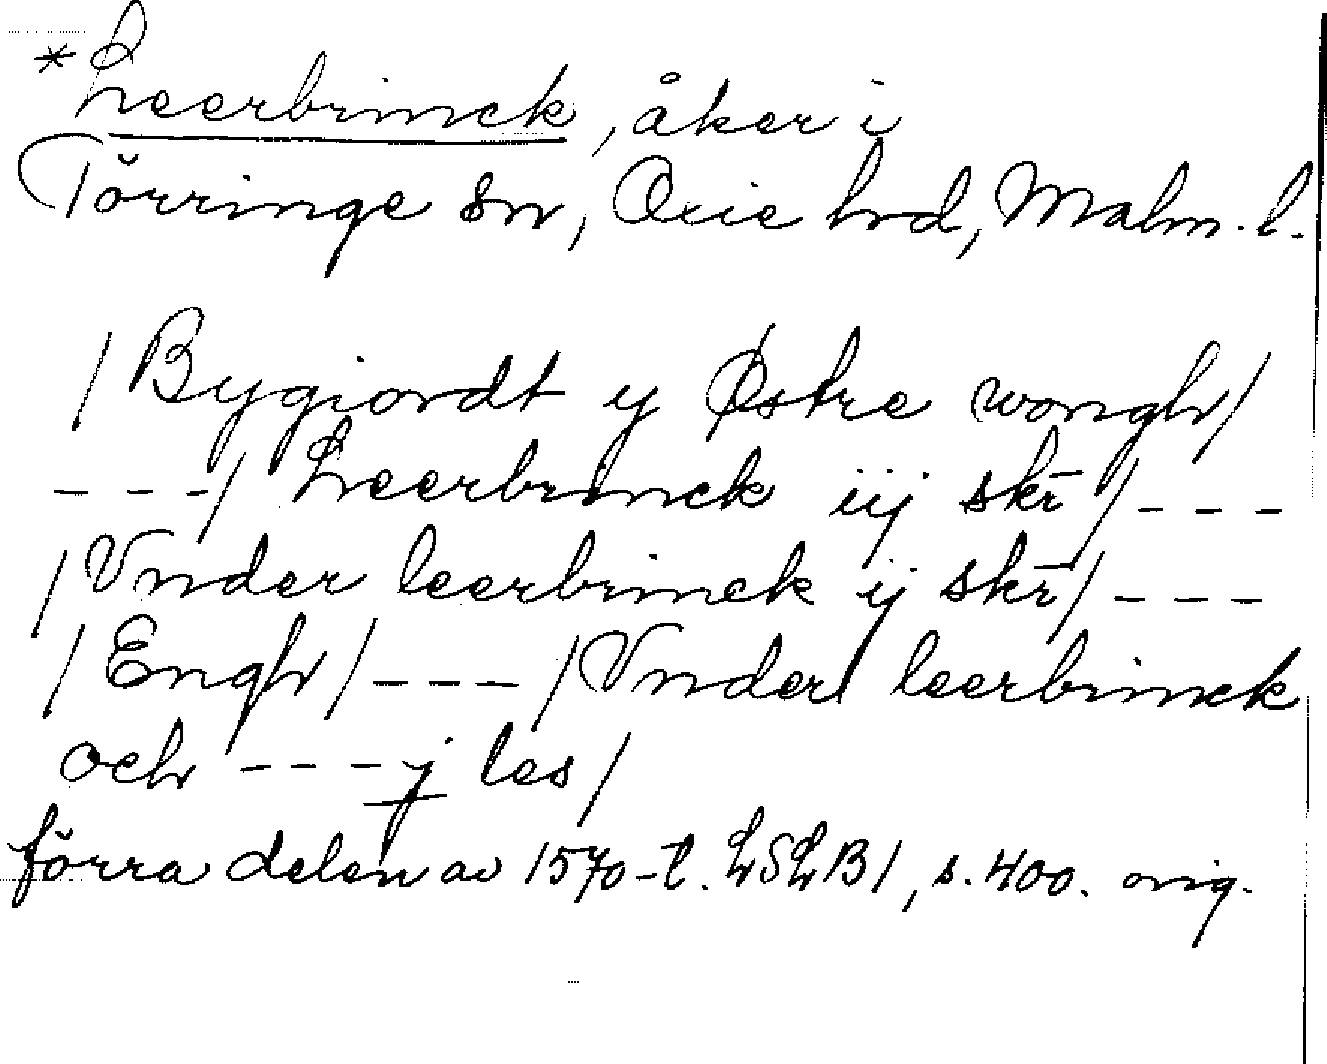 *Leerbrinck, åker i
Törringe sn, Oxie hrd, Malm. l.
/Bygiordt y Østre wongh/
---/ Leerbrinck iij skr̄ /---
/Vnder leerbrinck ij skr̄/---
/Engh/---/Vnder leerbrinck
och ---j les/
förra delen av 1570-t. LSLB1, s. 400. orig.